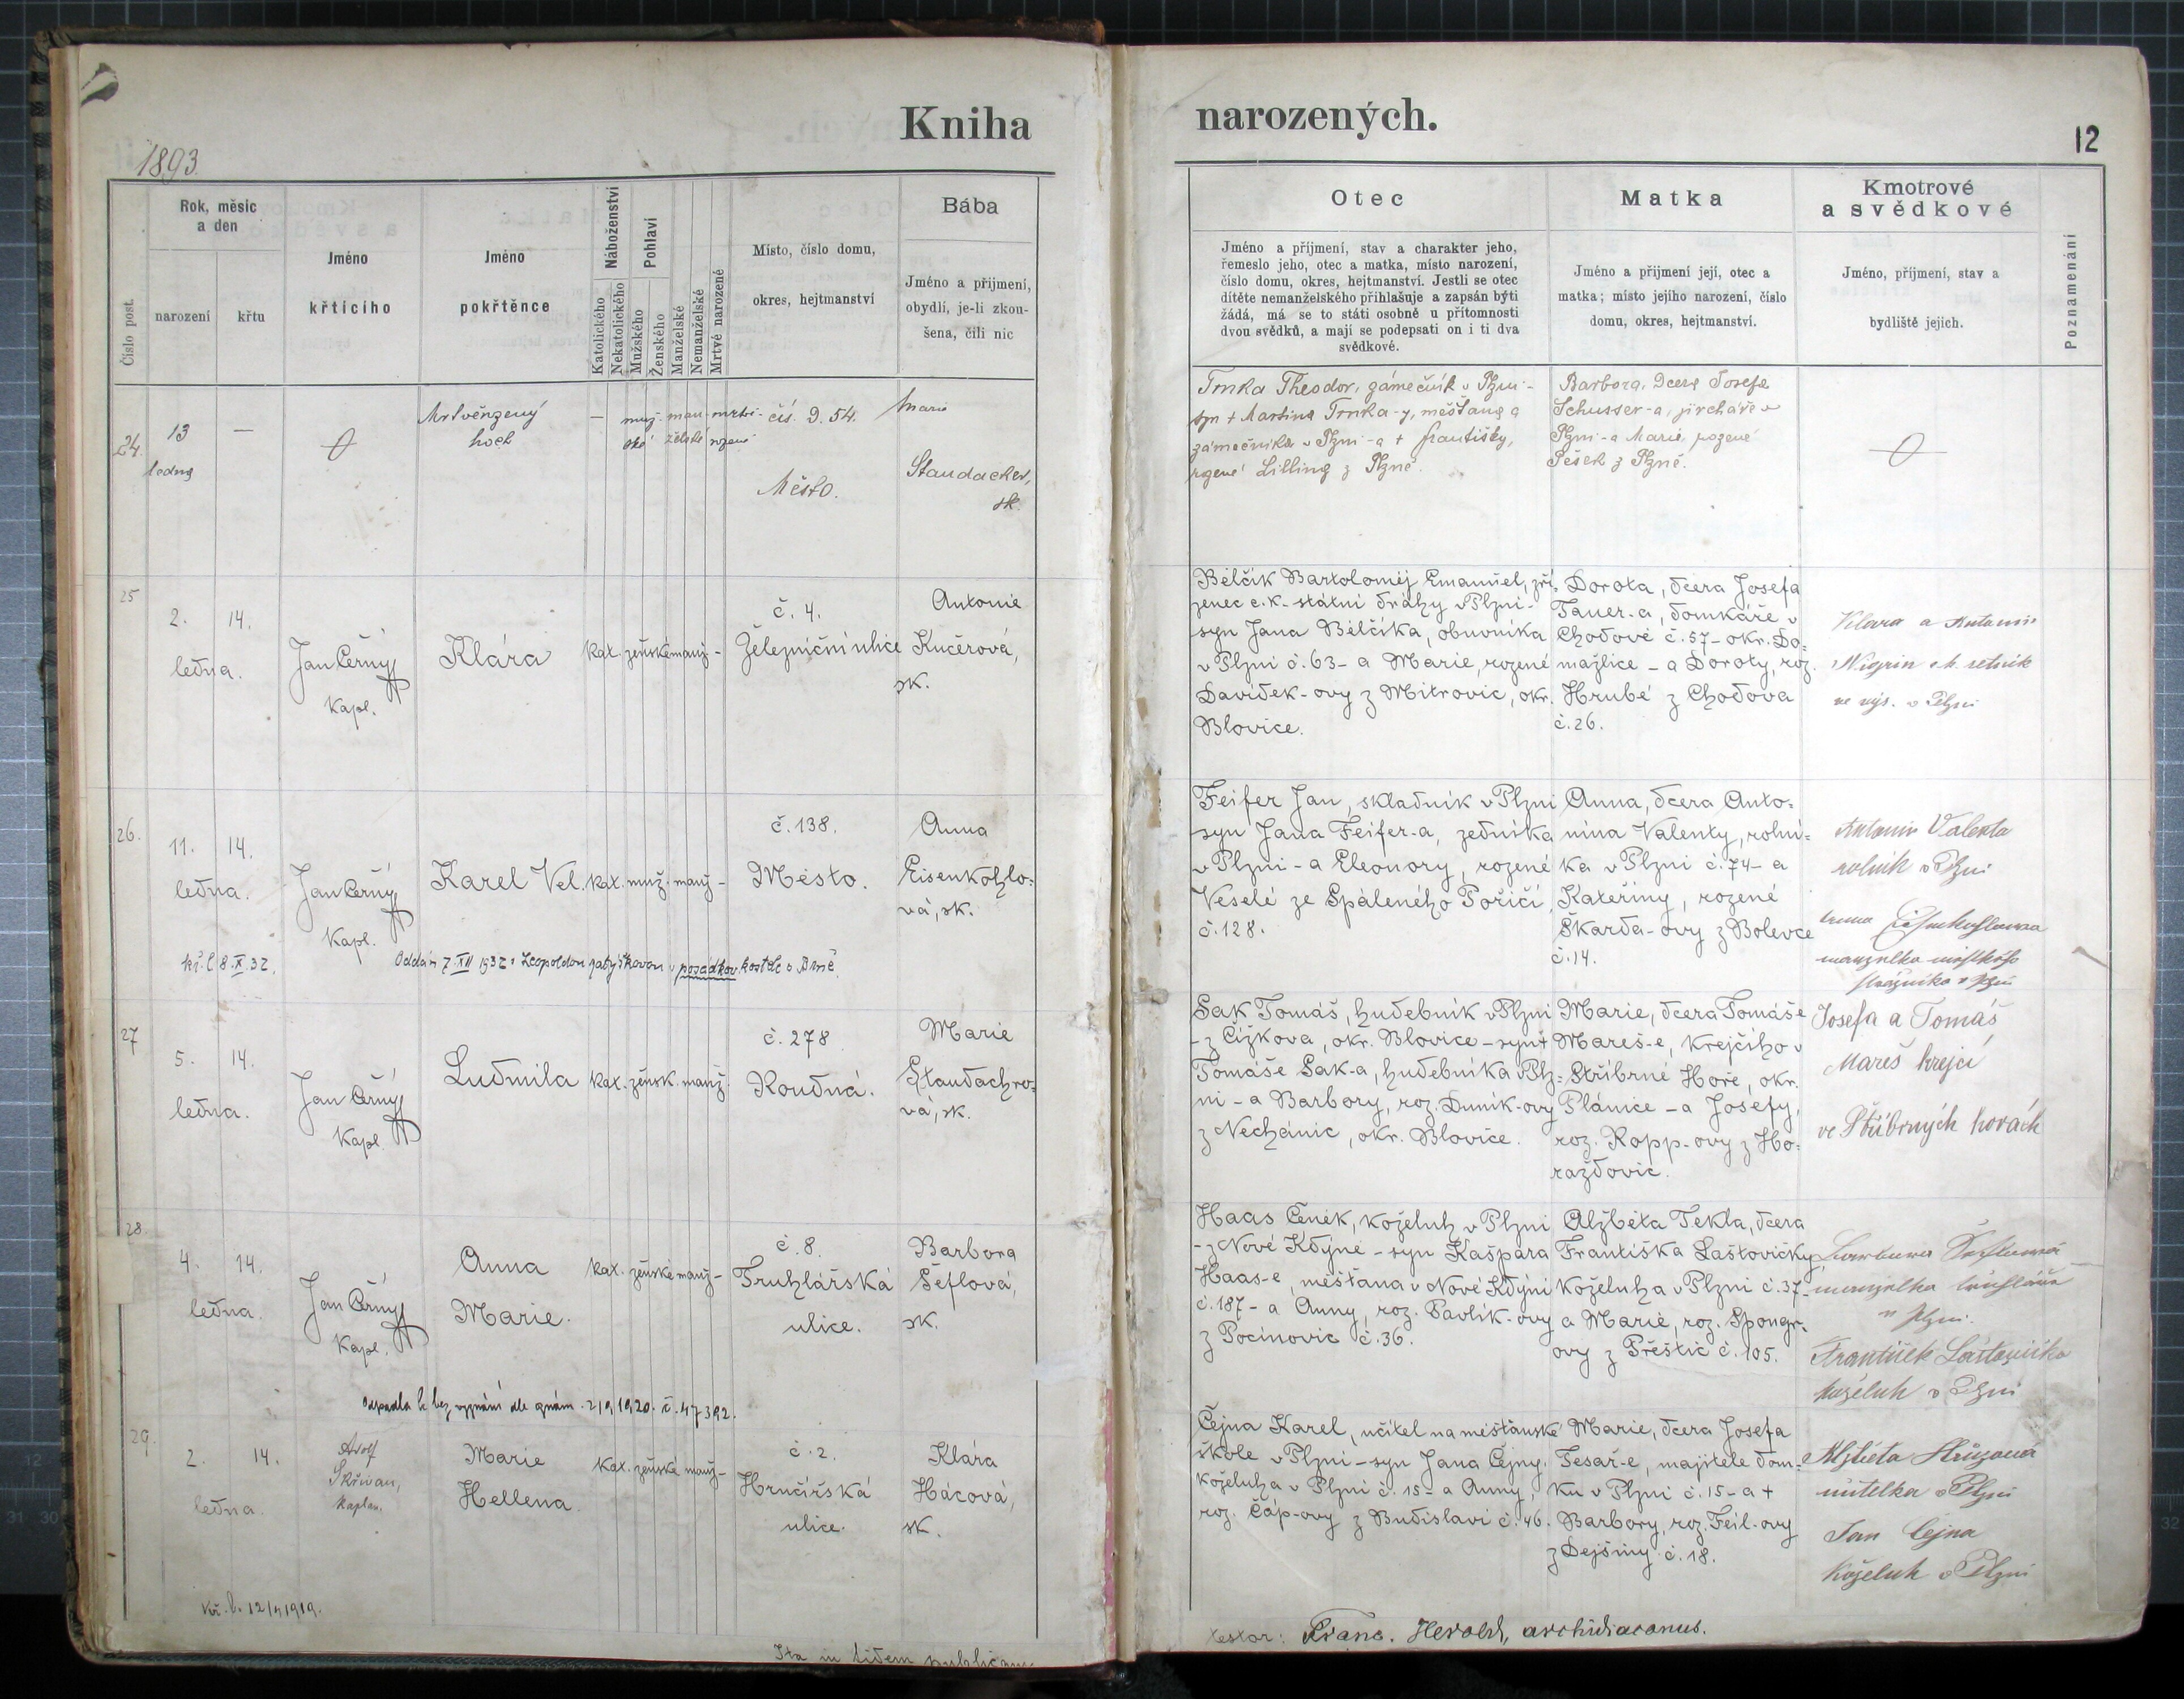 Kniha
narozených.
1893
12
Číslo post.
Rok, měsíc
a den
narození
křtu
Jméno
křtícího
Jméno
pokřtěnce
Náboženství
Katolického
Nekatolického
Pohlaví
Mužského
Ženského
Manželské
Nemanželské
Mrtvé narozené
Místo, číslo domu,
okres, hejtmanství
Bába
Jméno a přijmení,
obydlí, je-li zkou-
šena, čili nic
Otec
Jméno a příjmení, stav a charakter jeho,
řemeslo jeho, otec a matka, místo narození,
číslo domu, okres, hejtmanství. Jestli se otec
dítěte nemanželského přihlašuje a zapsán býti
žádá, má se to státi osobně u přítomnosti
dvou svědků, a mají se podepsati on i ti dva
svědkové.
Matka
Jméno a přijmení její, otec a
matka; místo jejího narození, číslo
domu, okres, hejtmanství.
Kmotrové
a svědkové
Jméno, příjmení, stav a
bydliště jejich.
Poznamenání
24.
13
ledna
—
Mrtvěrzený
hoch
—
muž- man- mrtvě-
ské želské rozené
čís. D. 54.
Město.
Marie
Staudacher,
zk.
Trnka Theodor, zámečník v Plzni-
syn + Martina Trnka-y, měšťana a
zámečníka v Plzni-a + Františky,
rozené Lilling z Plzně.
Barbora, dcera Josefa
Schusser-a, jircháře v
Plzni-a Marie, rozené
Pešek z Plzně.
25
2. 14.
ledna.
Jan Černý
Kapl.
Klára
kat. ženské manž-
č. 4.
Železniční ulice
Antonie
Kučerová,
zk.
Bělčík Bartoloměj Emanuel, zří-
zenec c.k. státní dráhy v Plzni-
syn Jana Bělčíka, obuvníka
v Plzni č. 63- a Marie, rozené
Davídek-ovy z Mitrovic, okr.
Blovice.
Dorota, dcera Josefa
Tauer-a, domkáře v
Chodově č. 57- okr. Do-
mažlice - a Doroty, roz.
Hrubé z Chodova
č. 26.
Klara a Antonín
Nigrin
ve výs. v Plzni
26.
11. 14.
ledna.
Jan Černý
Kapl.
Karel Vel.
kat. muž. manž-
č. 138.
Město.
Anna
Eisenkohlo-
vá, zk.
kř. l. 8.X.32.
Oddán 7.XII 1932 s Leopoldou v posádkov. kostele v Brně.
Feifer Jan, skladník v Plzni
syn Jana Feifer-a, zedníka
v Plzni - a Eleonory, rozené
Veselé ze Spáleného Poříčí,
č. 128.
Anna, dcera Anto-
nína Valenty, rolní-
ka v Plzni č. 74- a
Kateřiny, rozené
Škarda-ovy z Bolevce
č. 14.
Antonin Valenta
rolník v Plzni
manželka
v Plzni
27
5. 14.
ledna.
Jan Černý
Kapl.
Ludmila
kat. žensk. manž.
č. 278
Roudná.
Marie
Staudachro-
vá, zk.
Sak Tomáš, hudebník v Plzni
- z Čížkova, okr. Blovice - syn +
Tomáše Sak-a, hudebníka v Plz-
ni - a Barbory, roz. Duník-ovy
z Nechánic, okr. Blovice.
Marie, dcera Tomáše
Mareš-e, krejčího v
Stříbrné Hoře, okr.
Plánice - a Josefy,
roz. Kopp-ovy z Ho-
ražďovic.
Josefa a Tomáš
Mareš krejčí
ve Stříbrných horách
28.
4. 14.
ledna.
Jan Černý
Kapl.
Anna
Marie.
kat. ženské manž-
č. 8.
Truhlářská
ulice.
Barbora
Šeflová,
zk.
Odpadla k bez vyznání dle oznám. 2/9 1920. č. 47392.
Haas Čeněk, koželuh v Plzni
- z Nové Kdýně - syn Kašpara
Haas-e, měšťana v Nové Kdýni
č. 187 - a Anny, roz. Pavlík-ovy
z Pocinovic č. 36.
Alžběta Tekla, dcera
Františka Laštovičky,
koželuha v Plzni č. 37-
a Marie, roz. Spongr-
ovy z Přeštic č. 105.
Barbora
manželka truhláře
v Plzni.
František Laštovička
koželuh v Plzni
29.
2. 14.
ledna.
Adolf
Skřivan,
kaplan.
Marie
Hellena.
kat. ženské manž-
č. 2.
Hrnčířská
ulice.
Klára
Hácová,
zk.
Kř. l. 12/4 1919.
Čejna Karel, učitel na měšťanské
škole v Plzni - syn Jana Čejny,
koželuha v Plzni č. 15- a Anny,
roz. Čáp-ovy z Budislavi č. 46.
Marie, dcera Josefa
Tesař-e, majitele dom-
ku v Plzni č. 15- a +
Barbory, roz. Feil-ovy
z Dejšiny č. 18.
Alžběta Hrůzová
učitelka v Plzni
Jan Čejna
koželuh v Plzni
Ita in fidem publicam
testor: Franc. Herold, archidiaconus.